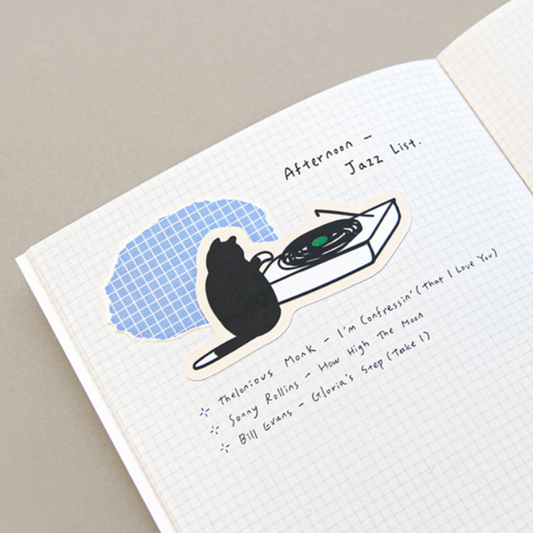 Afternoon -
Jazz List.
Thelonious Monk - I'm Confressin' (that I Love You)
Sonny Rollins - How High The Moon
Bill Evans - Gloria's Step (Take 1)